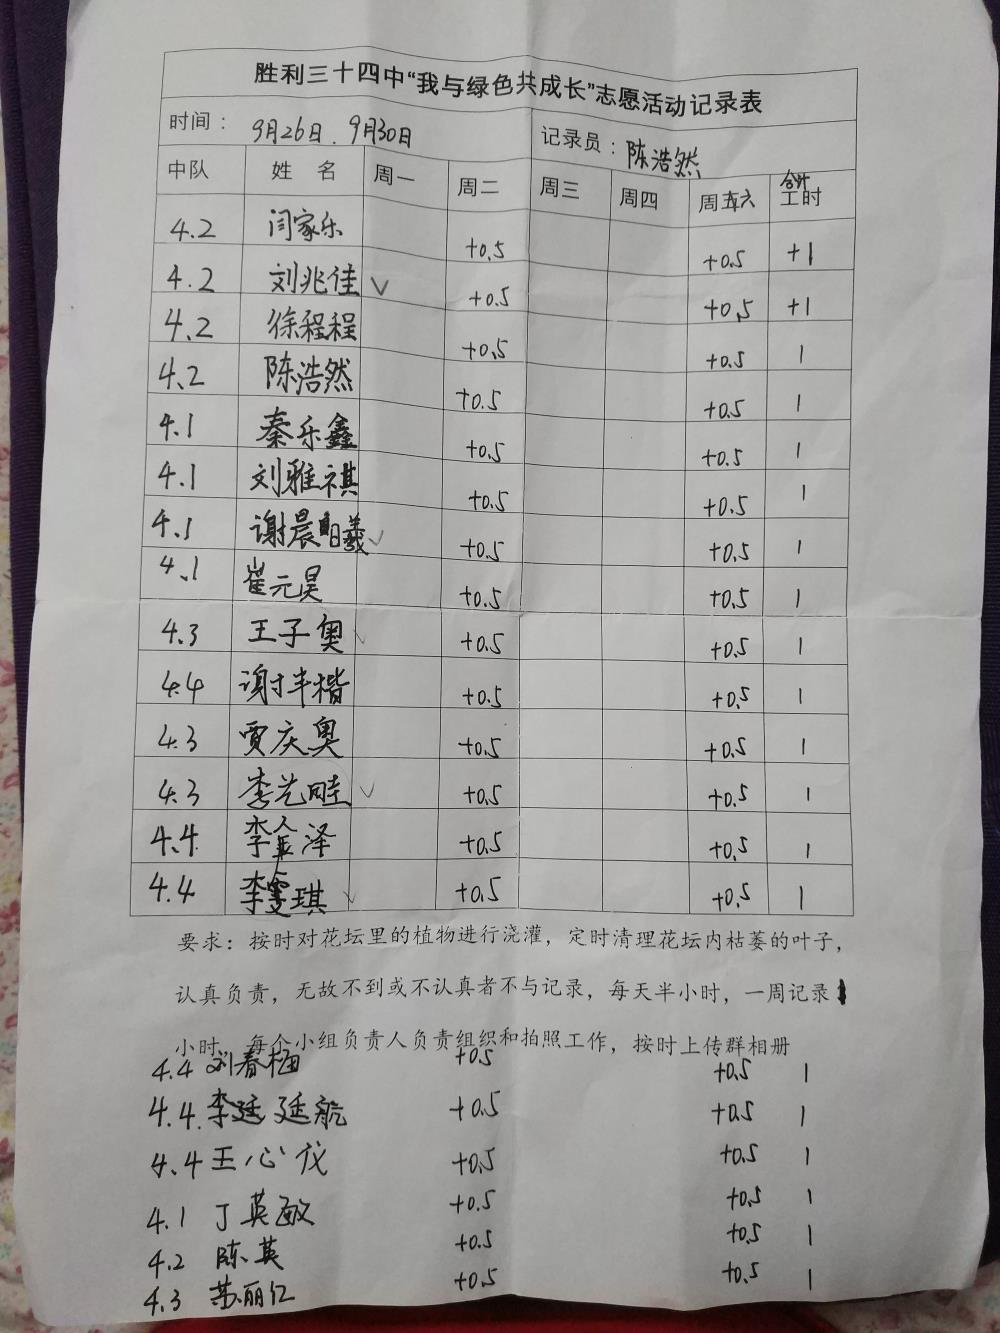 胜利三十四中“我与绿色共成长”志愿活动记录表
时间： 9月26日.9月30日 记录员：陈浩然
中队 姓 名 周一 周二 周三 周四 周五六 合计工时
4.2 闫家乐 +0.5 +0.5 +1
4.2 刘兆佳 ✓ +0.5 +0.5 +1
4.2 徐程程 +0.5 +0.5 1
4.2 陈浩然 +0.5 +0.5 1
4.1 秦乐鑫 +0.5 +0.5 1
4.1 刘雅祺 +0.5 +0.5 1
4.1 谢晨曦 ✓ +0.5 +0.5 1
4.1 崔元昊 +0.5 +0.5 1
4.3 王子奥 ✓ +0.5 +0.5 1
4.4 谢丰楷 +0.5 +0.5 1
4.3 贾庆奥 +0.5 +0.5 1
4.3 李艺畦 ✓ +0.5 +0.5 1
4.4 李金泽 +0.5 +0.5 1
4.4 李雯琪 ✓ +0.5 +0.5 1
要求：按时对花坛里的植物进行浇灌，定时清理花坛内枯萎的叶子，
认真负责，无故不到或不认真者不与记录，每天半小时，一周记录1
小时，每个小组负责人负责组织和拍照工作，按时上传群相册
4.4 刘春梅 +0.5 +0.5 1
4.4. 李廷航 +0.5 +0.5 1
4.4 王心仪 +0.5 +0.5 1
4.1 丁英敏 +0.5 +0.5 1
4.2 陈英 +0.5 +0.5 1
4.3 苏丽红 +0.5 +0.5 1